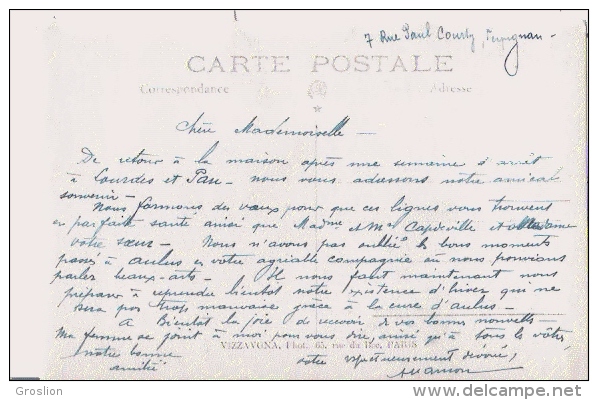 7 Rue Paul Courty, Perpignan -
CARTE POSTALE
Correspondance Adresse
Chère Mademoiselle -
De retour à la maison après une semaine d'arrêt
à Lourdes et Pau - nous vous adressons notre amical
souvenir -
Nous formons des vœux pour que ces lignes vous trouvent
en parfaite santé ainsi que Madme et Mr Capdeville et Madame
votre sœur - Nous n'avons pas oublié les bons moments
passés à Aulus en votre agréable compagnie où nous pouvions
parler beaux-arts - Il nous faut maintenant nous
préparer à reprendre bientôt notre existence d'hiver qui ne
sera pas trop mauvaise grâce à la cure d'Aulus -
A Bientôt la joie de recevoir de vos bonnes nouvelles -
Ma femme se joint à moi pour vous dire, ainsi qu'à tous les vôtres
VIZZAVONA, Phot. 65, rue du Bac, PARIS
notre bonne votre respectueusement dévoué,
amitié
Groslion
delcampe.net